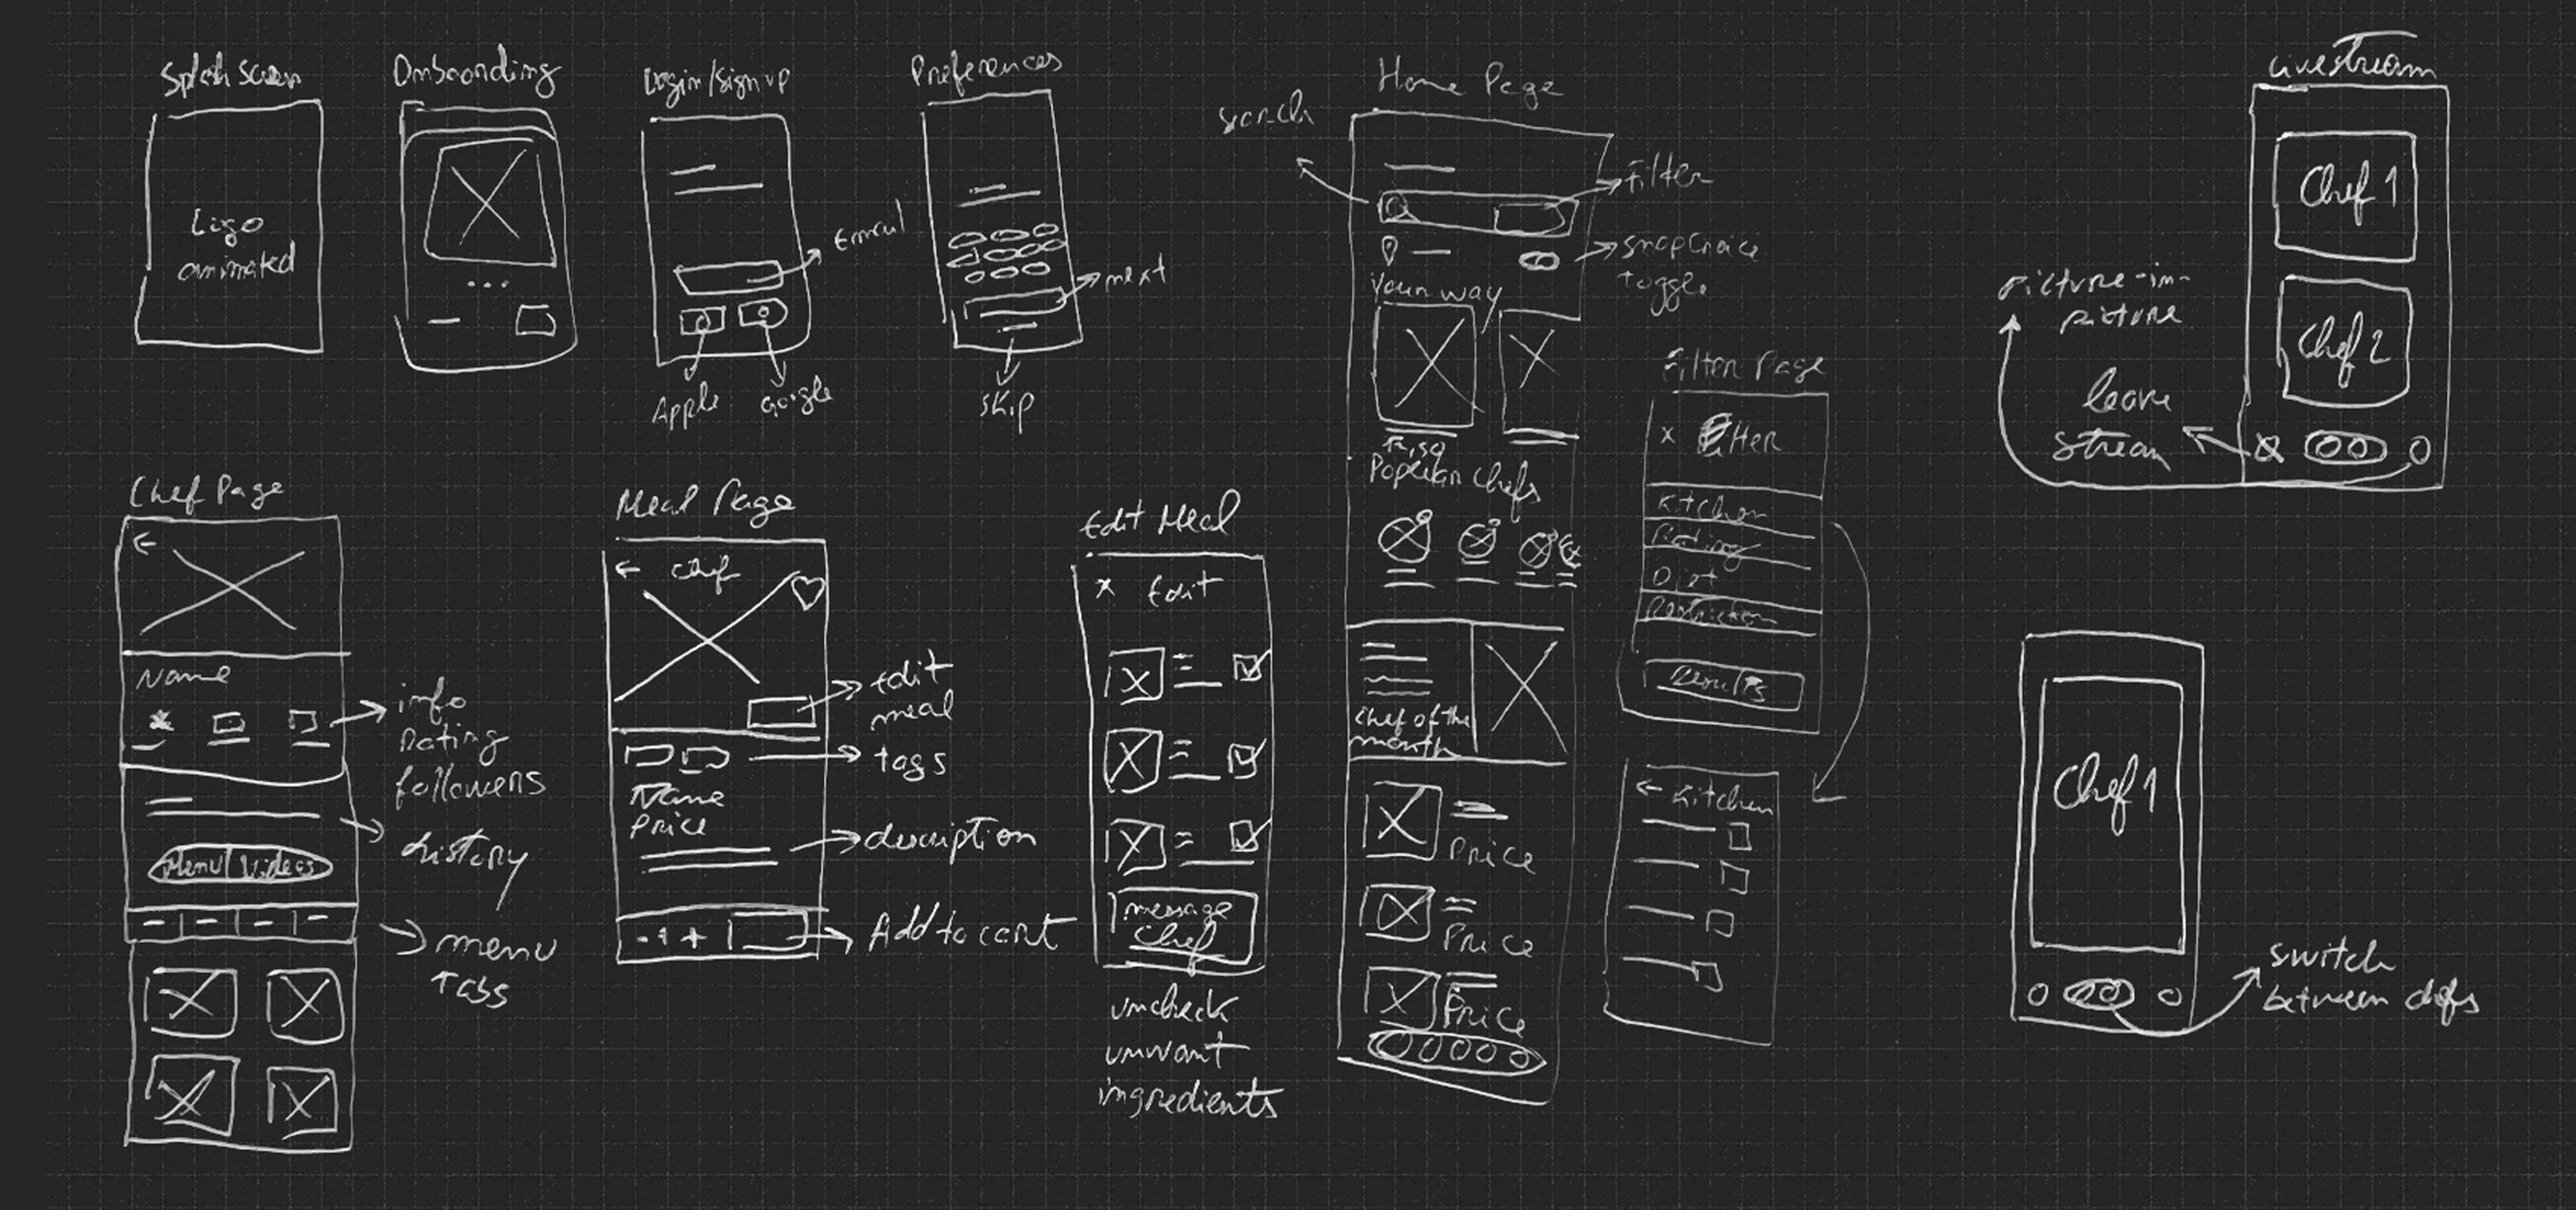 Splash Screen
Logo
animated
Onboarding
Login/Sign up
Email
Apple
Google
Preferences
next
skip
Home Page
search
Filter
toggle
Your way
Popular Chefs
Chef of the
month
Price
Price
Price
Filter Page
x Filter
Kitchen
Rating
Diet
Restriction
Results
← Kitchen
Livestream
Chef 1
Chef 2
Picture-in-
picture
leave
stream
Chef 1
switch
between chefs
Chef Page
←
Name
info
Rating
followers
history
Menu Videos
menu
tabs
Meal Page
← Chef
edit
meal
tags
Name
Price
description
- 1 +
Add to cart
Edit Meal
x Edit
message
chef
uncheck
unwant
ingredients